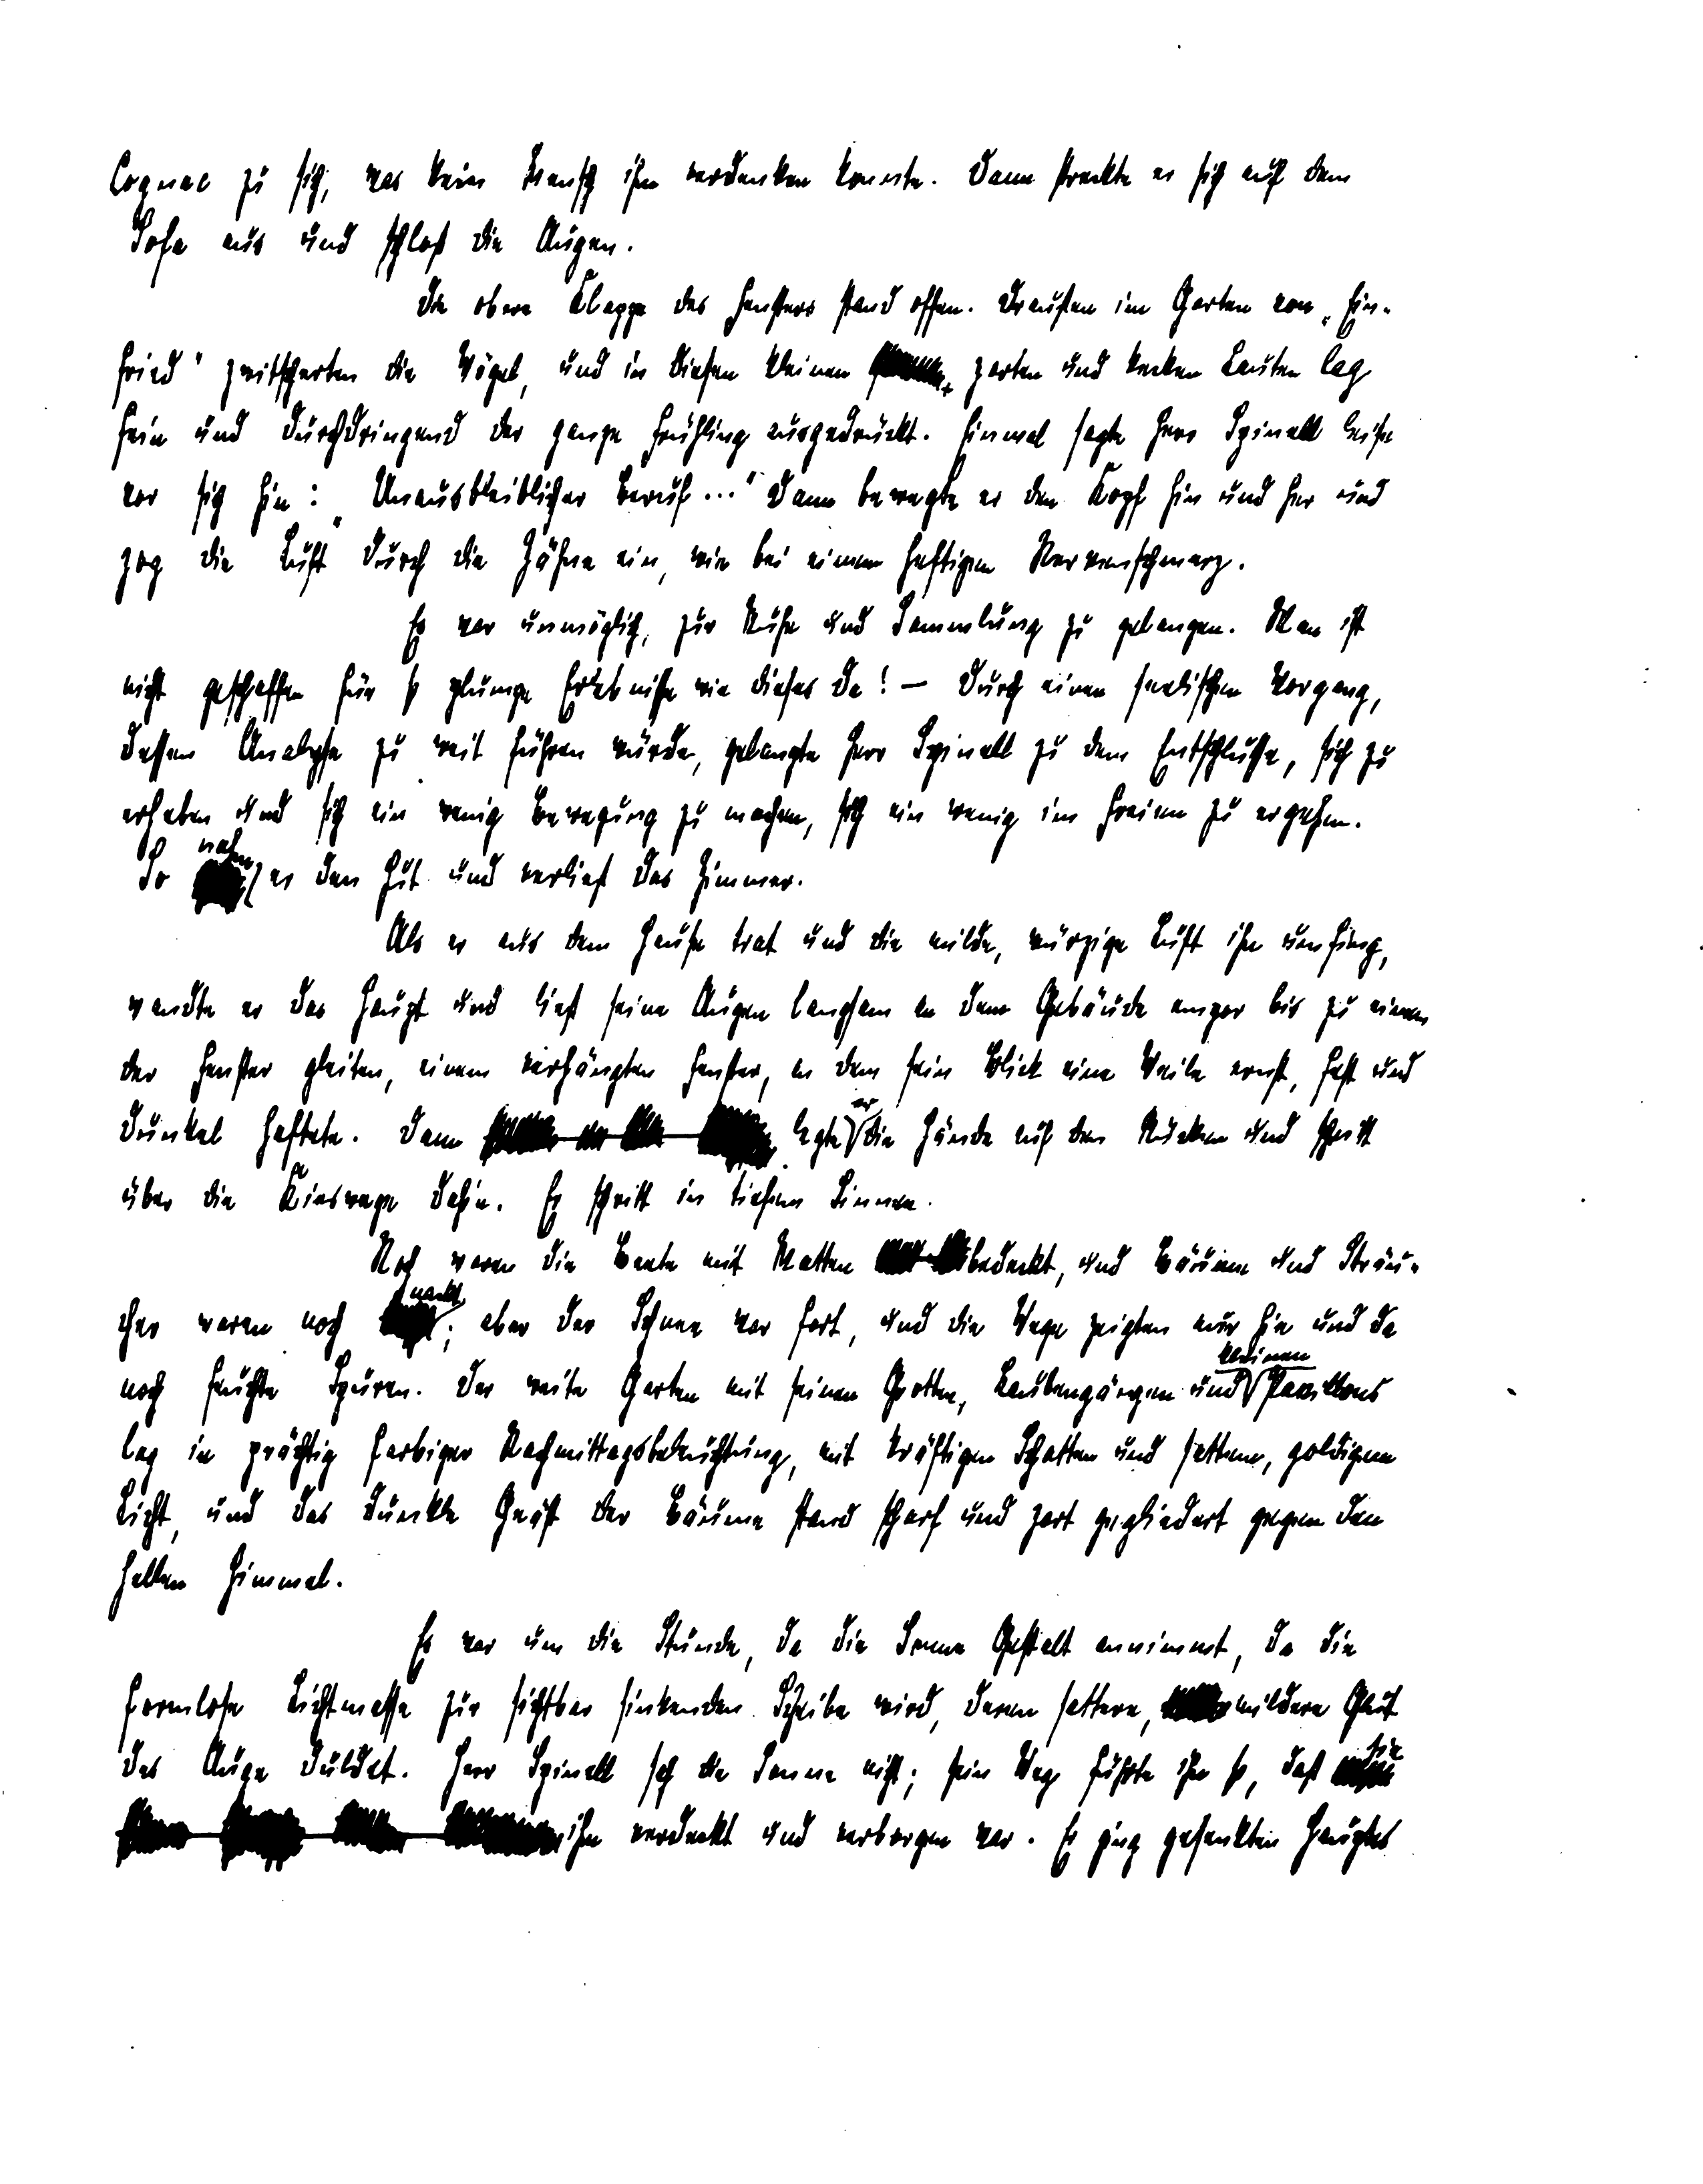 Cognac zu sich, was kein Mensch ihm verdenken konnte. Dann streckte er sich auf dem
Sofa aus und schloß die Augen.
Die obere Klappe des Fensters stand offen. Draußen im Garten von „Ein-
fried" zwitscherten die Vögel, und in diesen kleinen zarten und kecken Lauten lag
fein und durchdringend der ganze Frühling ausgedrückt. Einmal sagte Herr Spinell leise
vor sich hin: „Unausbleiblicher Beruf ..." Dann bewegte er den Kopf hin und her und
zog die Luft durch die Zähne ein, wie bei einem heftigen Nervenschmerz.
Es war unmöglich, zur Ruhe und Sammlung zu gelangen. Man ist
nicht geschaffen für so plumpe Erlebnisse wie dieses da! — Durch einen seelischen Vorgang,
dessen Analyse zu weit führen würde, gelangte Herr Spinell zu dem Entschlusse, sich zu
erheben und sich ein wenig Bewegung zu machen, sich ein wenig im Freien zu ergehen.
So nahm er den Hut und verließ das Zimmer.
Als er aus dem Hause trat und die milde, würzige Luft ihn umfing,
wandte er das Haupt und ließ seine Augen langsam an dem Gebäude empor bis zu einem
der Fenster gleiten, einem verhängten Fenster, an dem sein Blick eine Weile ernst, fest und
dunkel haftete. Dann legte er die Hände auf den Rücken und schritt
über die Kieswege dahin. Er schritt in tiefem Sinnen.
Noch waren die Beete mit Matten bedeckt, und Bäume und Sträu-
cher waren noch nackt; aber der Schnee war fort, und die Wege zeigten nur hie und da
noch feuchte Spuren. Der weite Garten mit seinen Grotten, Laubengängen und kleinen Pavillons
lag in prächtig farbiger Nachmittagsbeleuchtung, mit kräftigen Schatten und sattem, goldigem
Licht, und das dunkle Geäst der Bäume stand scharf und zart gegliedert gegen den
hellen Himmel.
Es war um die Stunde, da die Sonne Gestalt annimmt, da die
formlose Lichtmasse zur sichtbar sinkenden Scheibe wird, deren sattere, mildere Glut
das Auge duldet. Herr Spinell sah die Sonne nicht; sein Weg führte ihn so, daß sie
ihm verdeckt und verborgen war. Er ging gesenkten Hauptes